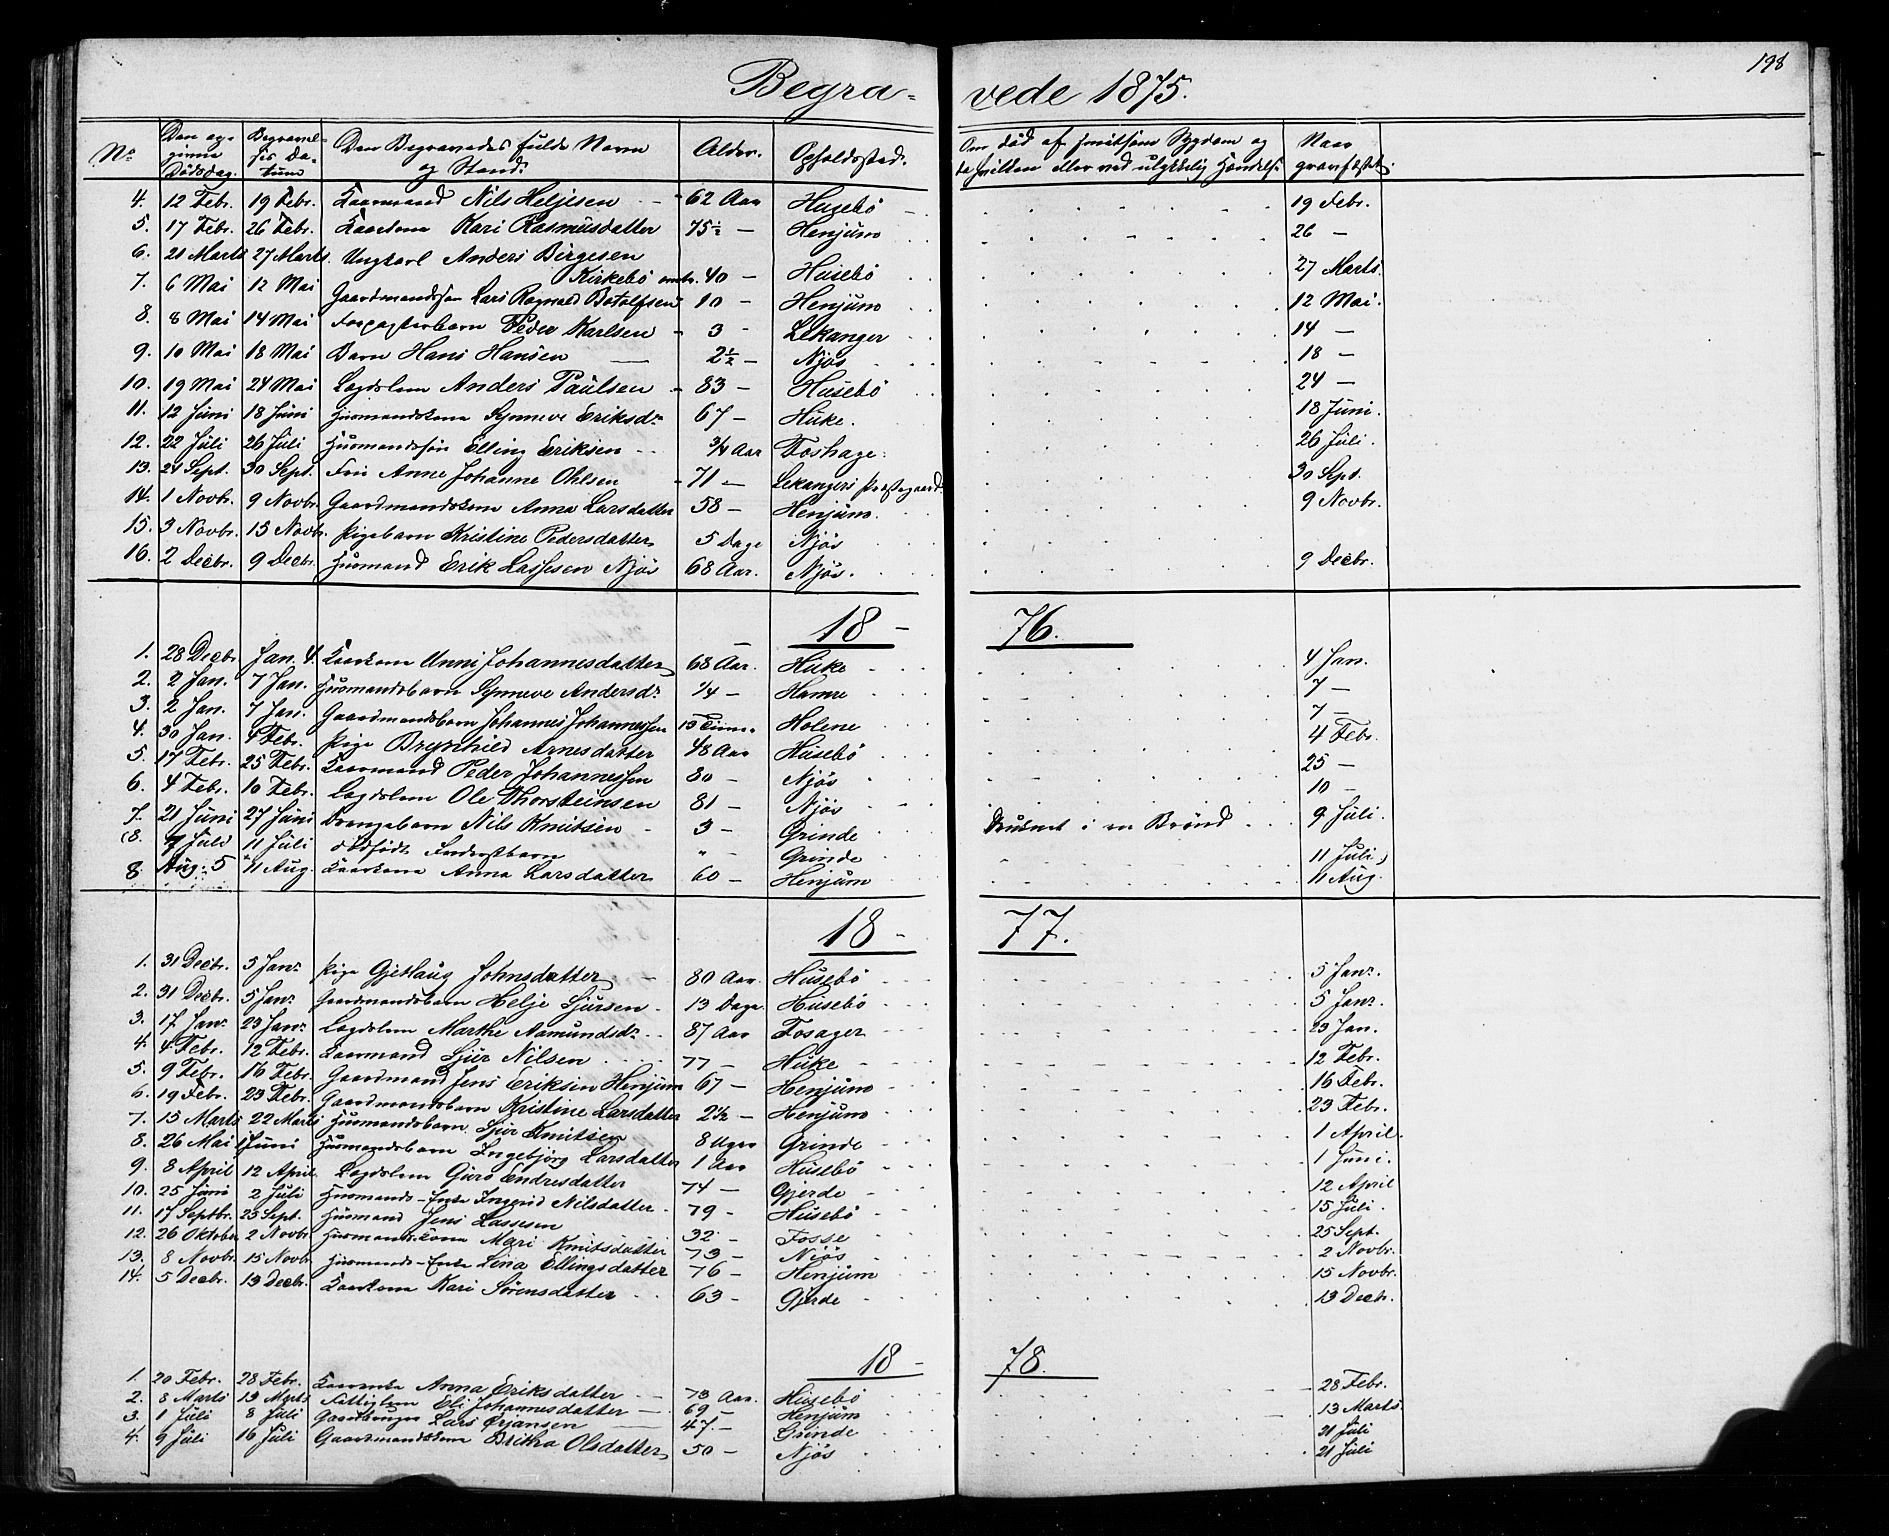 198
Begra- vede 1875.
No. Den op- givne Dødsdag. Begravel- ses Da- tum Den Begravedes fulde Navn og Stand. Alder. Opholdssted. Om død af smitsom Sygdom og da hvilken eller ved ulykkelig Hændelse Naar gravfæstet.
4. 12 Febr. 19 Febr. Kaarmand Nils Heljesen 62 Aar Husebø 19 Febr.
5. 17 Febr. 26 Febr. Kaarkona Kari Rasmusdatter 75½ — Henjum 26 —
6. 21 Marts 27 Marts. Ungkarl Anders Birgesen
Kirkebø omtr. 40 — Husebø 27 Marts.
7. 6 Mai 12 Mai Gaardmandssøn Lars Ragnald Botolfsen 10 — Henjum 12 Mai.
8. 8 Mai 14 Mai Forpagterbarn Peder Karlsen 3 — Lekanger 14 —
9. 10 Mai 18 Mai Barn Hans Hansen 2½ — Njøs 18 —
10. 19 Mai 24 Mai Lægdslem Anders Paulsen 83 — Husebø 24 —
11. 12 Juni 18 Juni Husmandskona Synneve Eriksdr. 67 — Huke. 18 Juni.
12. 22 Juli 26 Juli Husmandssøn Elling Eriksen 3/4 Aar Foshage. 26 Juli.
13. 24 Sept. 30 Sept. Fru Anne Johanne Ohlsen 71 — Lekangers Præstegaard. 30 Sept.
14. 1 Novbr. 9 Novbr. Gaardmandskona Anna Larsdatter 58 — Henjum. 9 Novbr.
15. 3 Novbr. 13 Novbr. Pigebarn Kristine Pedersdatter 5 Dage Njøs
16. 2 Decbr. 9 Decbr. Husmand Erik Lassesen Njøs 68 Aar. Njøs. 9 Decbr.
18 — 76.
1. 28 Decbr. Jan. 4. Kaarkona Unni Johannesdatter 68 Aar. Huke 4 Jan.
2. 2 Jan. 7 Jan. Husmandsbarn Synneve Andersdr. 1/4 — Hamre 7 —
3. 2 Jan. 7 Jan. Gaardmandsbarn Johannes Johannessen 13 Timer Holene 7 —
4. 30 Jan. 4 Febr. Pige Brynhild Arnesdatter 48 Aar Husebø 4 Febr.
5. 17 Febr. 25 Febr. Kaarmand Peder Johannessen 80 — Njøs 25 —
6. 4 Febr. 10 Febr. Lægdslem Ole Thorsteinsen 81 — Njøs 10 —
7. 21 Juni 27 Juni Drengebarn Nils Knutsen 3 — Grinde Druknet i en Brønd 9 Juli.
(8. 7 Juli 11 Juli dødfødt Grinde 11 Juli)
8 Aug. 5 11 Aug. Kaarkona Anna Larsdatter 60 — Henjum 11 Aug.
18 — 77.
1. 31 Decbr. 5 Janr. Pige Gjetlaug Johnsdatter 80 Aar. Husebø 5 Janr.
2. 31 Decbr. 5 Janr. Gaardmandsbarn Helje Sjursen 13 Dage Husebø 5 Janr.
3. 17 Janr. 23 Janr. Lægdslem Marthe Aamundsdr. 87 Aar Fosager 23 Jan.
4. 4 Febr. 12 Febr. Kaarmand Sjur Nilsen 77 — Huke 12 Febr.
5. 9 Febr. 16 Febr. Gaardmand Jens Eriksen Henjum 67 — Henjum 16 Febr.
6. 19 Febr. 23 Febr. Gaardmandsbarn Kristine Larsdatter 2½ — Henjum 23 Febr.
7. 15 Marts 22 Marts Husmandsbarn Sjur Knutsen 8 Uger Grinde 1 April.
8. 26 Mai 1 Juni Husmandsbarn Ingebjørg Larsdatter 1 Aar Husebø 1 Juni.
9. 8 April 12 April. Lægdslem Guro Endresdatter 74 — Gjerde 12 April
10. 25 Juni 2 Juli Husmands-Enke Ingrid Nilsdatter 79 — Husebø 15 Juli.
11. 17 Septbr. 23 Sept. Husmand Jens Lassesen 32 — Fosse 25 Sept.
12. 26 Oktober 2 Novbr. Husmandskona Mari Knutsdatter 73 — Njøs 2 Novbr.
13. 8 Novbr. 15 Novbr. Husmands-Enke Lina Ellingsdatter 76 — Henjum 15 Novbr.
14. 5 Decbr. 13 Decbr. Kaarkona Kari Sørensdatter 63 — Gjerde 13 Decbr.
18 — 78.
1. 20 Febr. 28 Febr. Kaarenke Anna Eriksdatter 73 Aar. Husebø 28 Febr.
2. 8 Marts 13 Marts Fattiglem Eli Johannesdatter 69 — Henjum 13 Marts.
3. 1 Juli 8 Juli Gaardbruger Lars Ørjansen 47. — Grinde 21 Juli
4. 9 Juli 16 Juli Gaardmandskona Britha Olsdatter 50 — Njøs 21 Juli